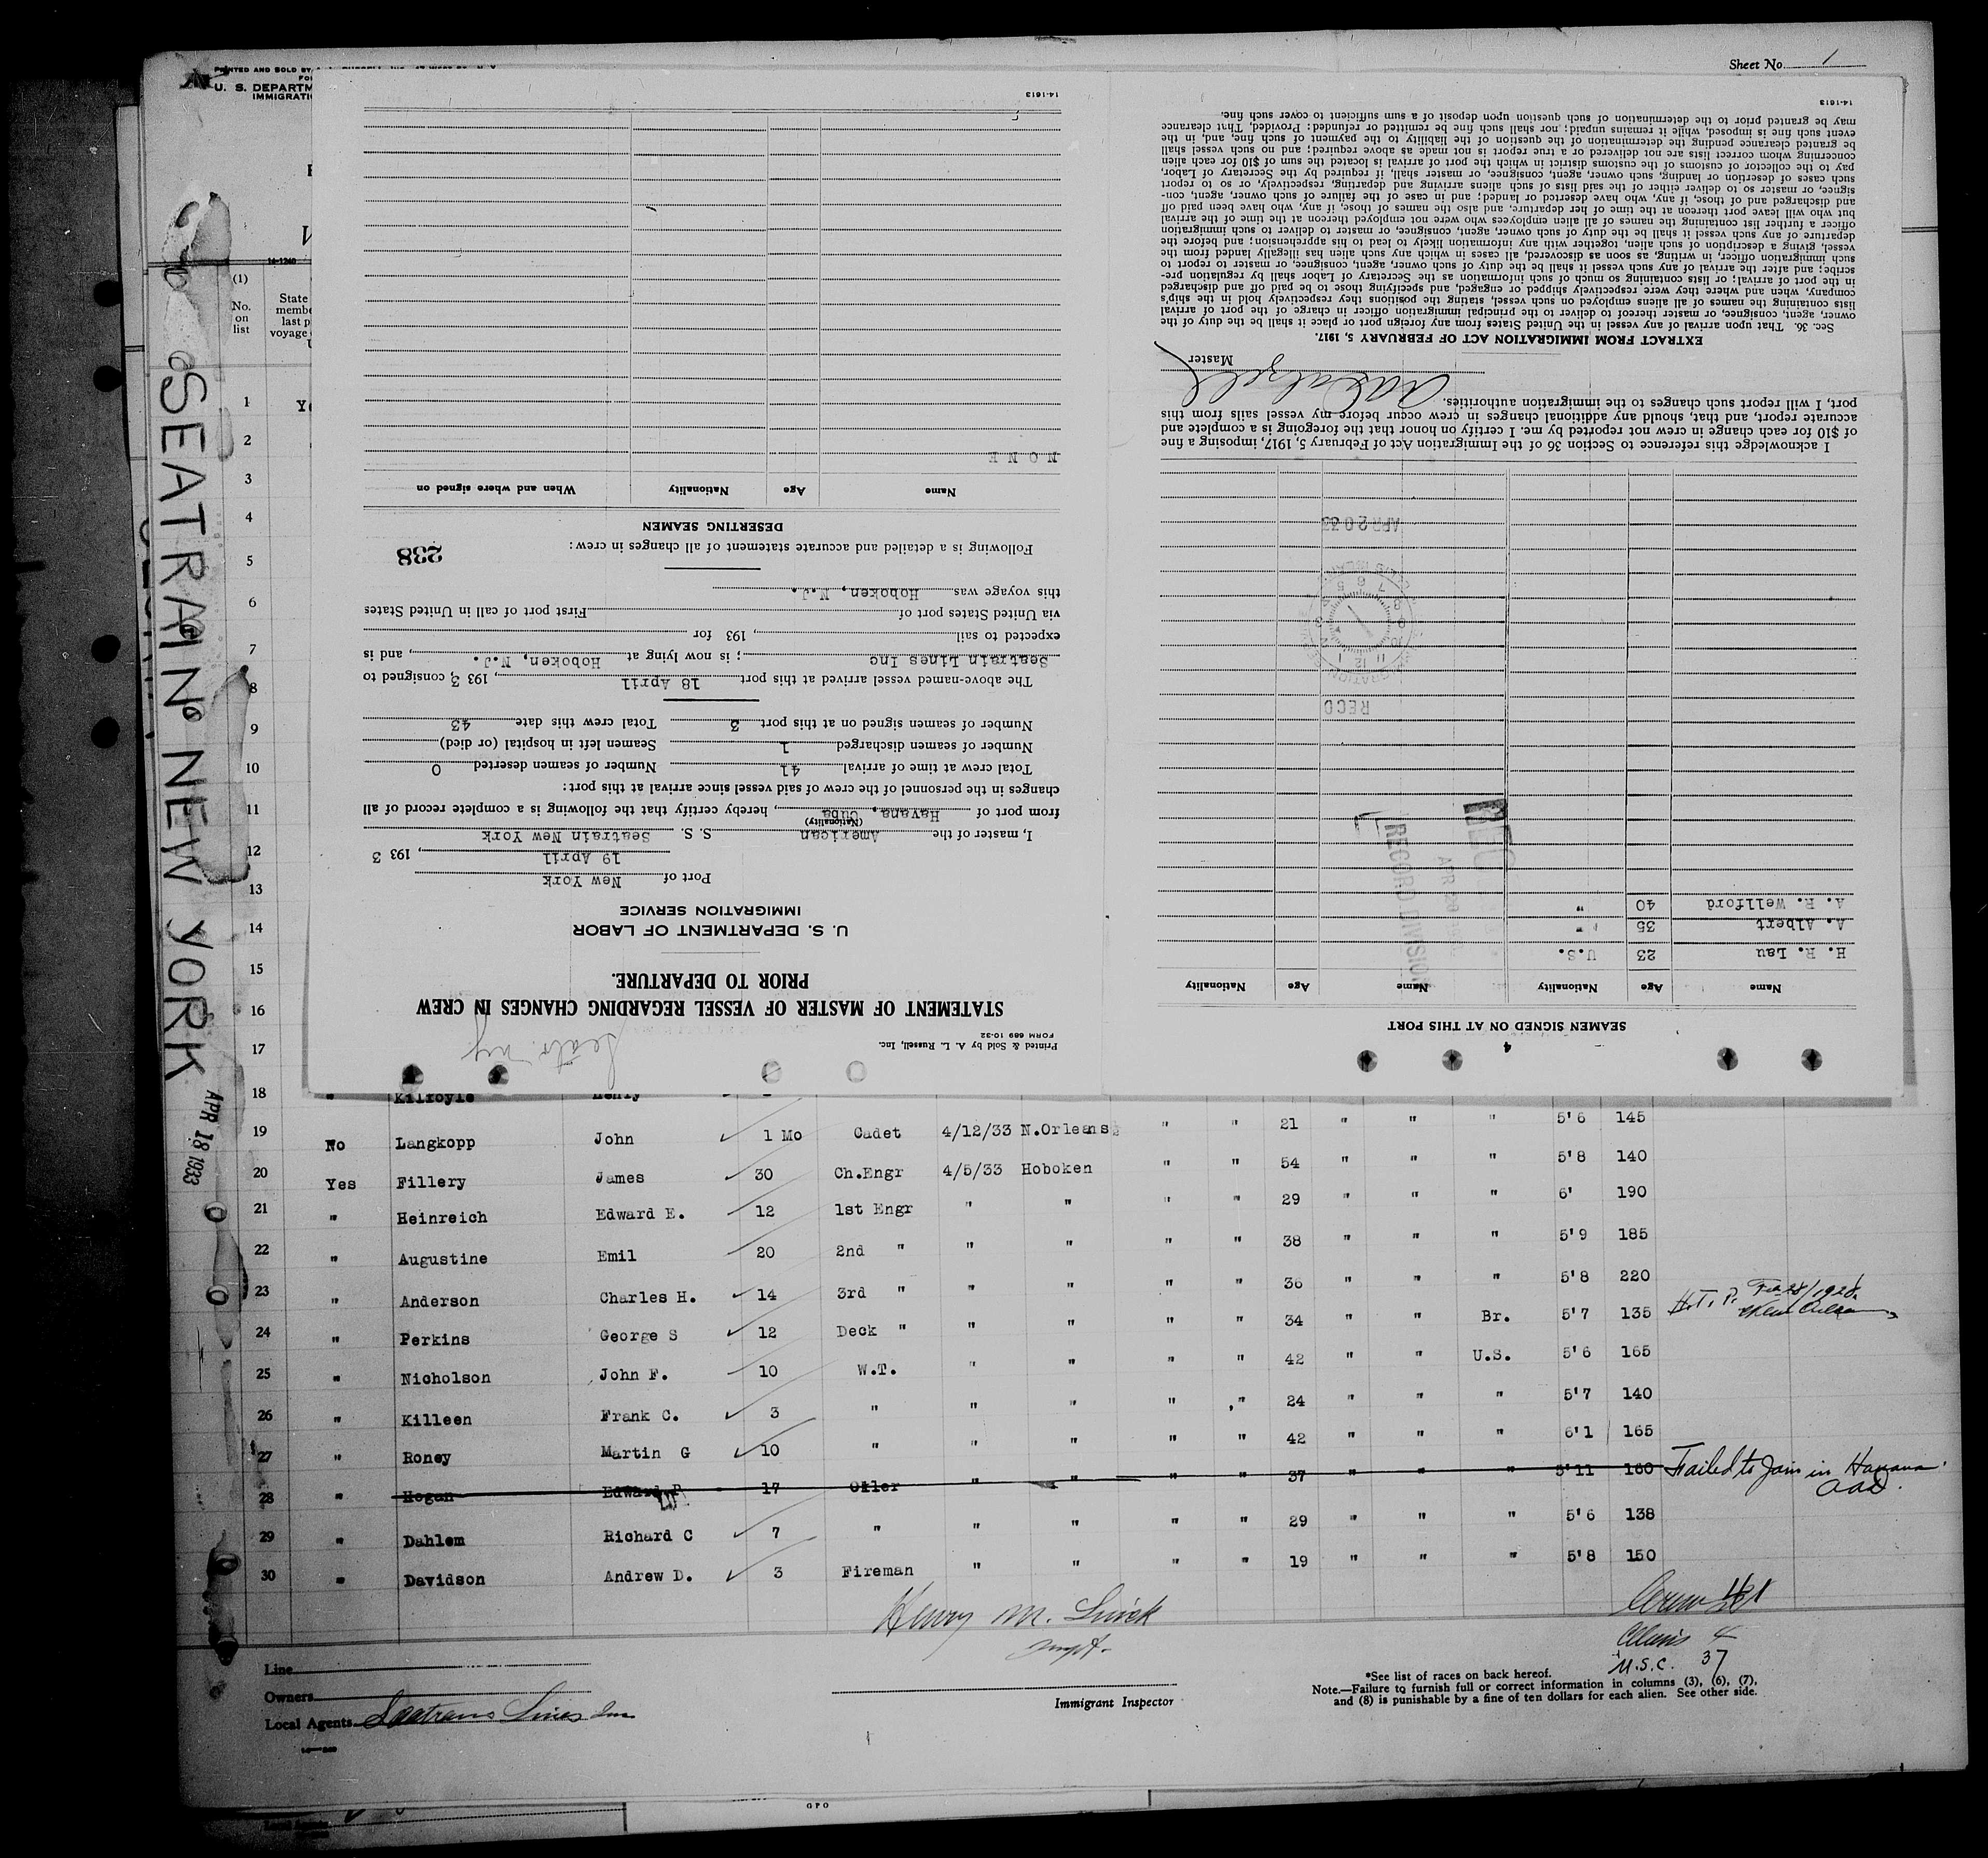 Sheet No. 1
PRINTED AND SOLD BY
U. S. DEPARTM
IMMIGRATI
14-1240
(1)
No. on list
State
membe
last p
voyage
SEATRAIN NEW YORK
APR 18 1933
1
2
3
4
5
6
7
8
9
10
11
12
13
14
15
16
17
Printed & Sold by A. L. Russell, Inc.
FORM 689 10-32
STATEMENT OF MASTER OF VESSEL REGARDING CHANGES IN CREW
PRIOR TO DEPARTURE.
U. S. DEPARTMENT OF LABOR
IMMIGRATION SERVICE
Port of New York
19 April, 193 3
I, master of the American S. S. Seatrain New York
(Nationality)
from port of Havana, Cuba, hereby certify that the following is a complete record of all
changes in the personnel of the crew of said vessel since arrival at this port:
Total crew at time of arrival 41 Number of seamen deserted 0
Number of seamen discharged 1 Seamen left in hospital (or died)
Number of seamen signed on at this port 3 Total crew this date 43
The above-named vessel arrived at this port 18 April, 193 3, consigned to
Seatrain Lines Inc; is now lying at Hoboken, N.J., and is
expected to sail, 193 for
via United States port of First port of call in United States
this voyage was Hoboken, N.J.
Following is a detailed and accurate statement of all changes in crew:
238
DESERTING SEAMEN
Name Age Nationality When and where signed on
N O N E
14-1613
SEAMEN SIGNED ON AT THIS PORT
4
Name Age Nationality Name Age Nationality
H. R. Lau 23 U.S.
A. Albert 35 "
A. R. Wellford 40 "
RECORD DIVISION
RECD
APR 20 33
I acknowledge this reference to Section 36 of the Immigration Act of February 5, 1917, imposing a fine
of $10 for each change in crew not reported by me. I certify on honor that the foregoing is a complete and
accurate report, and that, should any additional changes in crew occur before my vessel sails from this
port, I will report such changes to the immigration authorities.
Master
EXTRACT FROM IMMIGRATION ACT OF FEBRUARY 5, 1917.
Sec. 36. That upon arrival of any vessel in the United States from any foreign port or place it shall be the duty of the
owner, agent, consignee, or master thereof to deliver to the principal immigration officer in charge of the port of arrival
lists containing the names of all aliens employed on such vessel, stating the positions they respectively hold in the ship's
company, when and where they were respectively shipped or engaged, and specifying those to be paid off and discharged
in the port of arrival; or lists containing so much of such information as the Secretary of Labor shall by regulation pre-
scribe; and after the arrival of any such vessel it shall be the duty of such owner, agent, consignee, or master to report to
such immigration officer, in writing, as soon as discovered, all cases in which any such alien has illegally landed from the
vessel, giving a description of such alien, together with any information likely to lead to his apprehension; and before the
departure of any such vessel it shall be the duty of such owner, agent, consignee, or master to deliver to such immigration
officer a further list containing the names of all alien employees who were not employed thereon at the time of the arrival
but who will leave port thereon at the time of her departure, and also the names of those, if any, who have been paid off
and discharged and of those, if any, who have deserted or landed; and in case of the failure of such owner, agent, con-
signee, or master so to deliver either of the said lists of such aliens arriving and departing, respectively, or so to report
such cases of desertion or landing, such owner, agent, consignee, or master shall, if required by the Secretary of Labor,
pay to the collector of customs of the customs district in which the port of arrival is located the sum of $10 for each alien
concerning whom correct lists are not delivered or a true report is not made as above required; and no such vessel shall
be granted clearance pending the determination of the question of the liability to the payment of such fine, and, in the
event such fine is imposed, while it remains unpaid; nor shall such fine be remitted or refunded: Provided, That clearance
may be granted prior to the determination of such question upon deposit of a sum sufficient to cover such fine.
14-1613
18 " Kilroyle Henry
19 No Langkopp John 1 Mo Cadet 4/12/33 N.Orleans " " 21 " " " 5'6 145
20 Yes Fillery James 30 Ch.Engr 4/5/33 Hoboken " " 54 " " " 5'8 140
21 " Heinreich Edward E. 12 1st Engr " " " " 29 " " " 6' 190
22 " Augustine Emil 20 2nd " " " " " 38 " " " 5'9 185
23 " Anderson Charles H. 14 3rd " " " " " 36 " " " 5'8 220
24 " Perkins George S 12 Deck " " " " " 34 " " Br. 5'7 135 H.T. P. Feb 28/1928 New Orleans
25 " Nicholson John F. 10 W.T. " " " " 42 " " U.S. 5'6 165
26 " Killeen Frank C. 3 " " " " " 24 " " " 5'7 140
27 " Roney Martin G 10 " " " " " 42 " " " 6'1 165
28 " Hogan Edward P 17 Oiler " " " " 37 " " " 5'11 160 Failed to Join in Havana.
29 " Dahlem Richard C 7 " " " " " 29 " " " 5'6 138
30 " Davidson Andrew D. 3 Fireman " " " " 19 " " " 5'8 150
Crew 41
Aliens 4
U.S.C. 37
Line
Owners
Local Agents Seatrain Lines Inc
Immigrant Inspector
*See list of races on back hereof.
Note.—Failure to furnish full or correct information in columns (3), (6), (7),
and (8) is punishable by a fine of ten dollars for each alien. See other side.
GPO